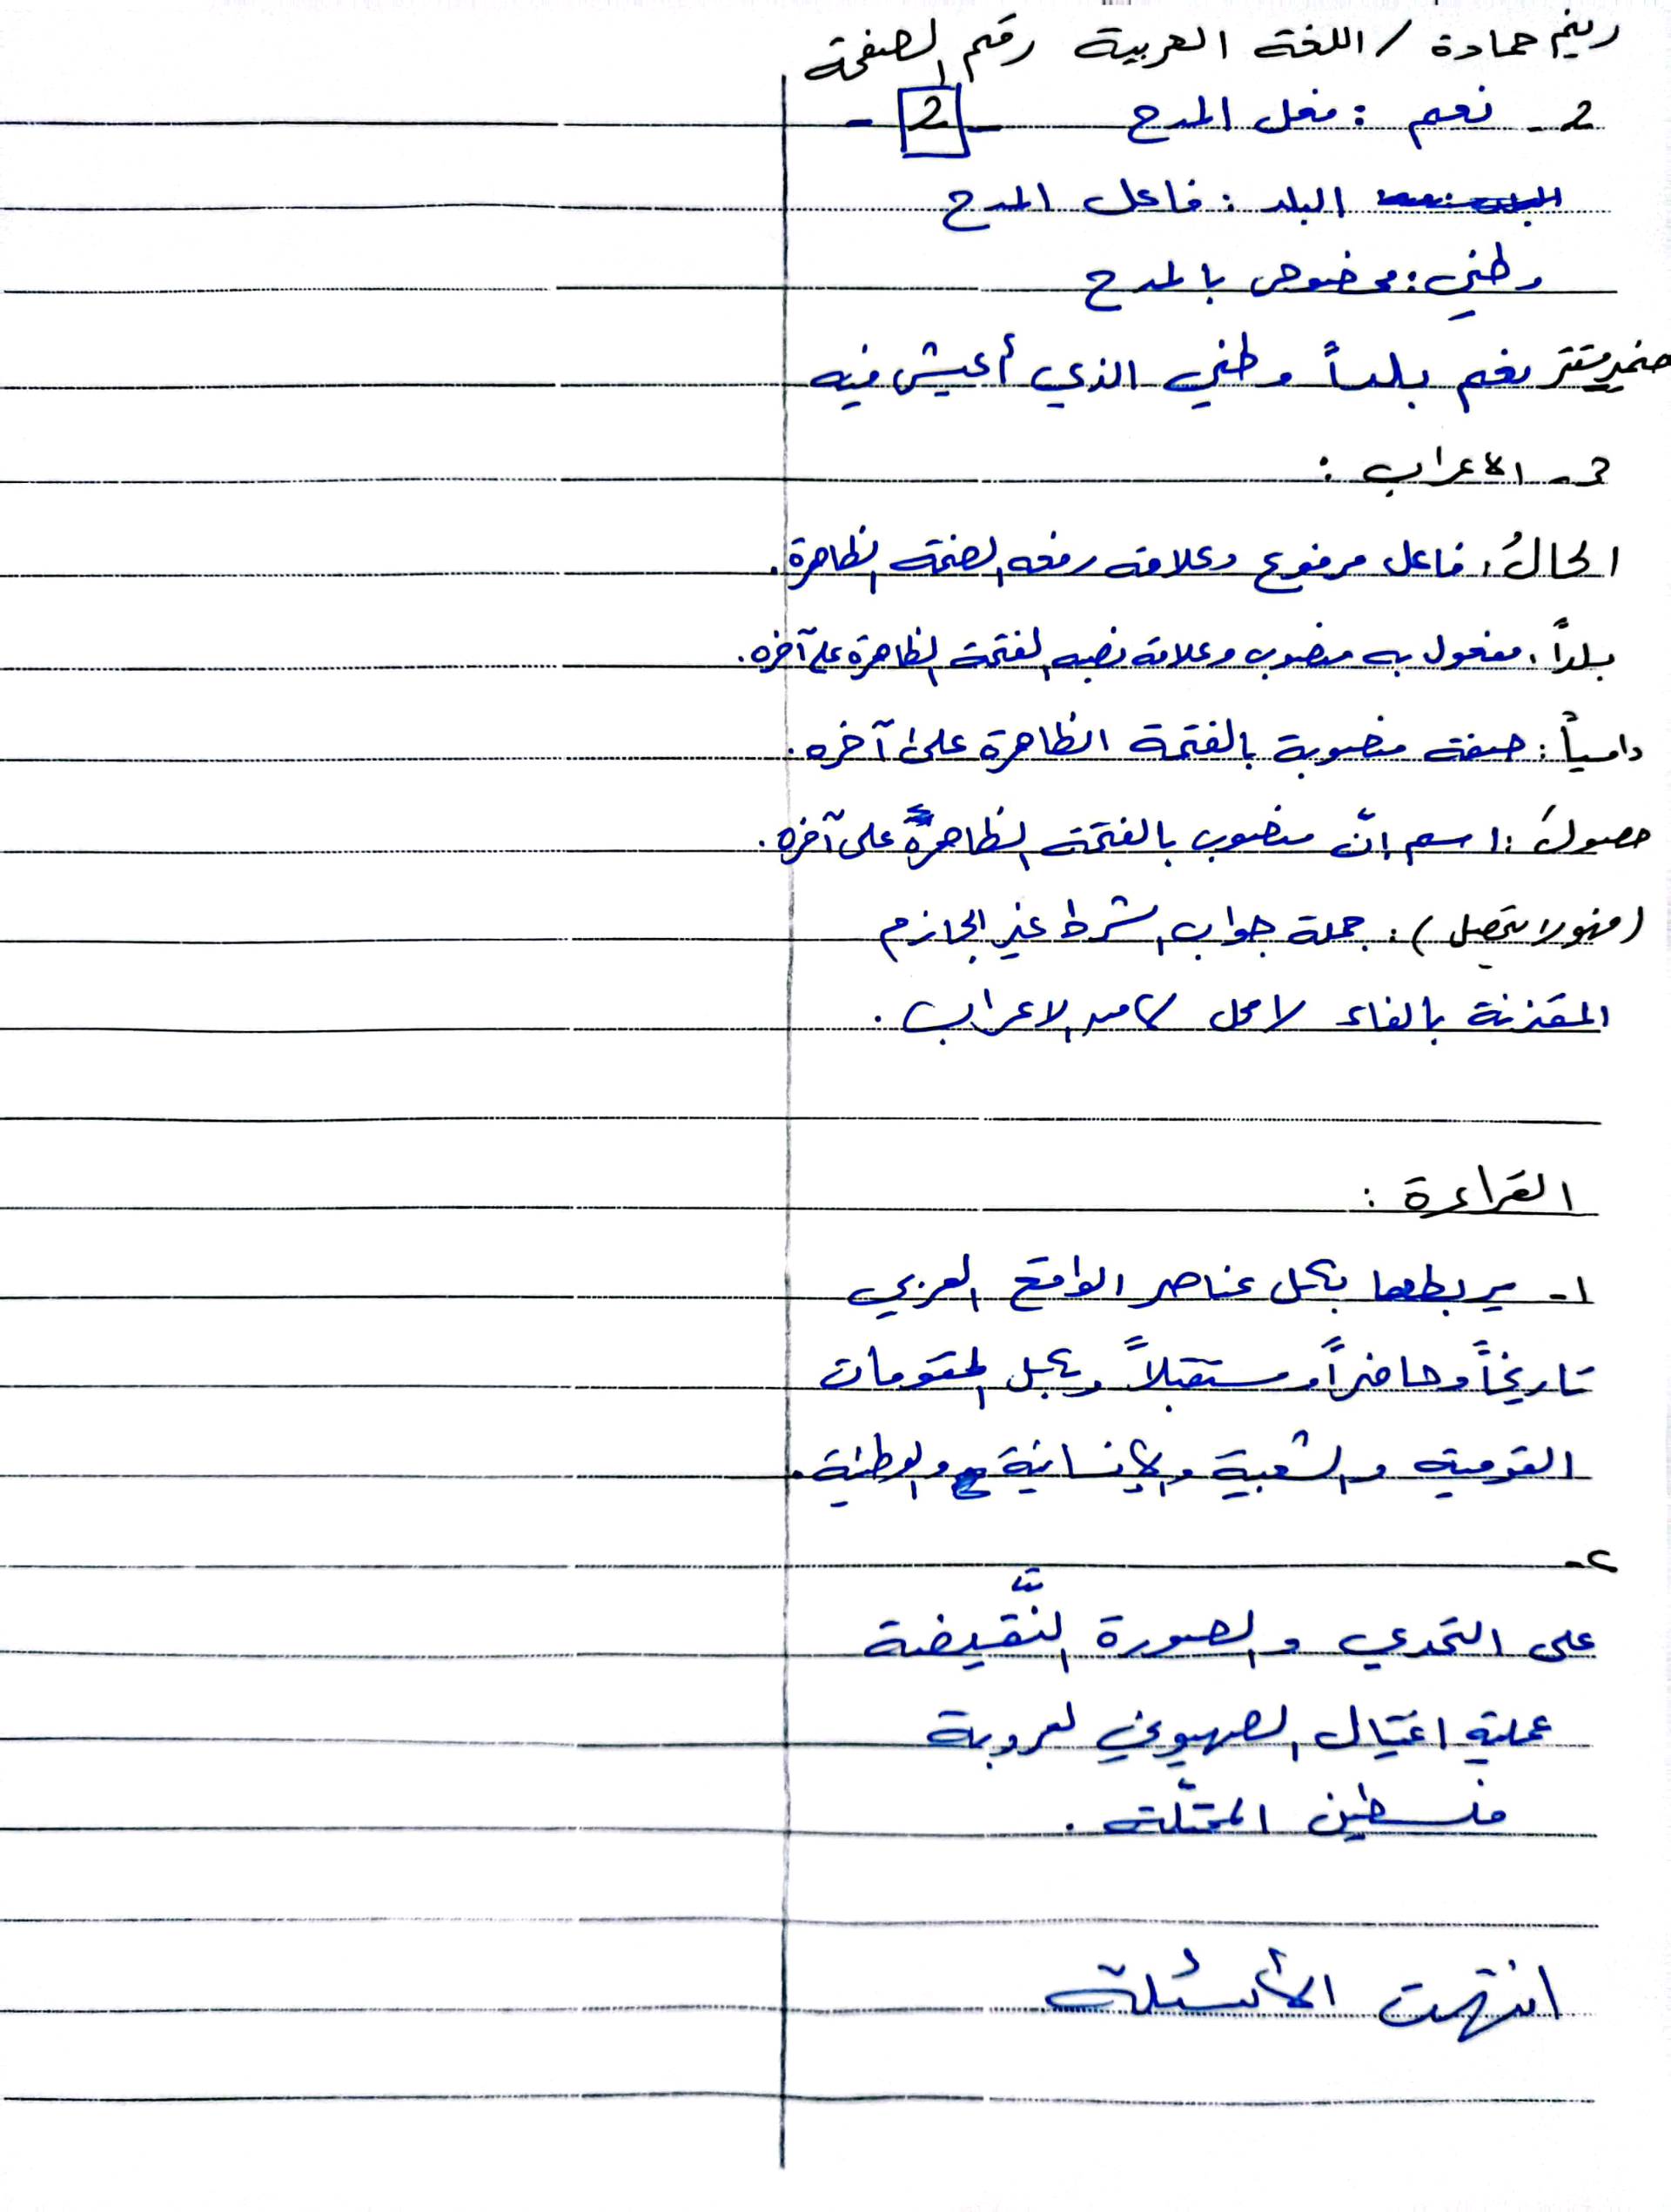 ريم حمادة / اللغة العربية رقم الصفحة
2- نعم : فعل المدح -2-
البلد : فاعل المدح
وطني : مخصوص بالمدح
ضمير مستتر نعم بلداً وطني الذي أعيش فيه
3- الاعراب :
الحالُ : فاعل مرفوع وعلامة رفعه الضمة الظاهرة.
بلداً : مفعول به منصوب وعلامة نصبه الفتحة الظاهرة على آخره.
دامياً : صفة منصوبة بالفتحة الظاهرة على آخره.
حصولَ : اسم إنّ منصوب بالفتحة الظاهرة على آخره.
(فهو لا يتصل) : جملة جواب الشرط غير الجازم
المقترنة بالفاء لا محل لها من الاعراب.
القراءة :
1- يربطها بكل عناصر الواقع العربي
تاريخاً وحاضراً ومستقبلاً وبكل المقومات
القومية والشعبية والإنسانية والوطنية.
2-
على التحدي والصورة النَّقيضة
عملية اغتيال الصهيوني لعروبة
فلسطين المحتلّة.
انتهت الأسئلة